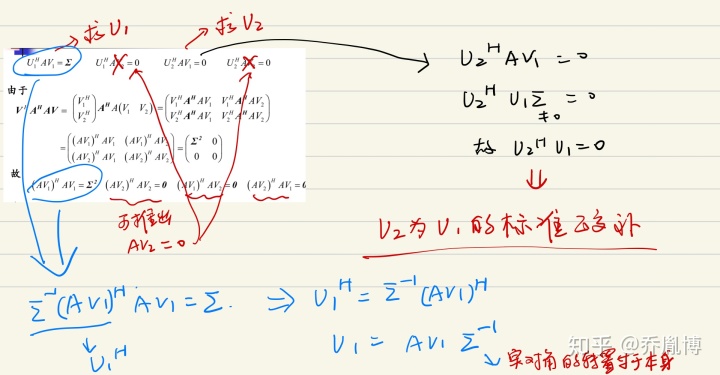 求U₁
求U₂
U₁ᴴAV₁=Σ U₁ᴴAV₂=0 U₂ᴴAV₁=0 U₂ᴴAV₂=0
由于
VᴴAᴴAV = (V₁ᴴ V₂ᴴ) AᴴA(V₁ V₂) = (V₁ᴴAᴴAV₁ V₁ᴴAᴴAV₂ V₂ᴴAᴴAV₁ V₂ᴴAᴴAV₂)
= ((AV₁)ᴴAV₁ (AV₁)ᴴAV₂ (AV₂)ᴴAV₁ (AV₂)ᴴAV₂) = (Σ² 0 0 0)
故
(AV₁)ᴴAV₁=Σ² (AV₂)ᴴAV₁=0 (AV₁)ᴴAV₂=0 (AV₂)ᴴAV₂=0
可推出
AV₂=0
U₂ᴴAV₁=0
U₂ᴴU₁Σ=0
≠0
故 U₂ᴴU₁=0
U₂为U₁的标准正交补
Σ⁻¹(AV₁)ᴴAV₁=Σ. ⇒ U₁ᴴ=Σ⁻¹(AV₁)ᴴ
U₁ᴴ
U₁=AV₁Σ⁻¹
实对角的转置等于本身
知乎 @乔胤博